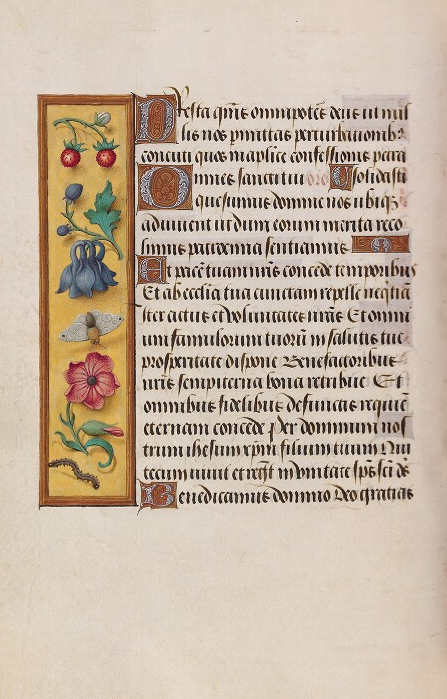 Presta qus omnipotes deus ut nul
lis nos pmittas perturbationib9
concuti quos in aplice confessionis petra
Omnes sancti tui oro solidasti
quesumus domine nos ubiqz
adiuvent ut dum eorum merita reco
limus patrocinia sentiamus
Et pacem tuam nris concede temporibus
Et ab ecclia tua cunctam repelle nequitia
Iter actus et voluntates nras Et omni
um famulorum tuorum in salutis tue
prosperitate dispone Benefactoribus
nris sempiterna bona retribue Et
omnibus fidelibus defunctis requie
eternam concede Per dominum nos
trum ihesum xpm filium tuum Qui
tecum vivit et regt in unitate sps sci ds
Benedicamus domino Deo gratias